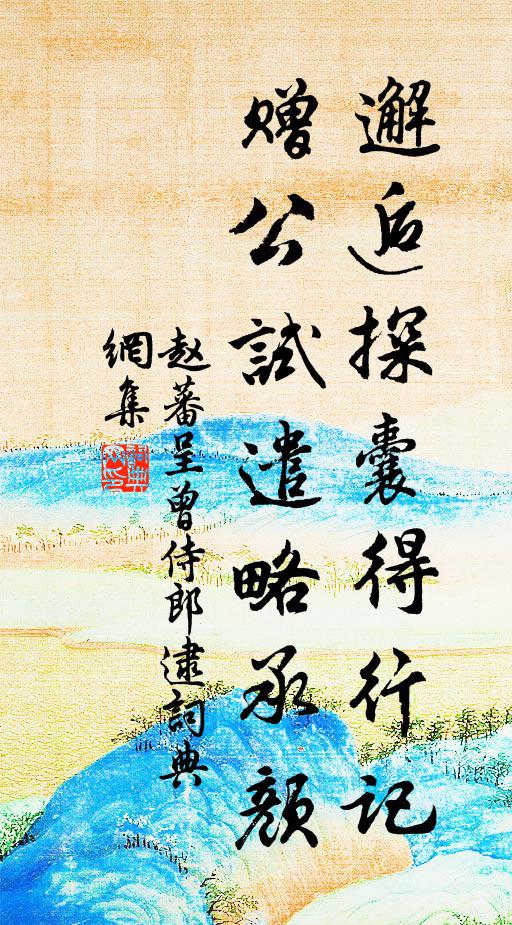 邂逅探囊得行记
赠公試遣略承顔
赵蕃呈曾侍郎逮詞典
網集